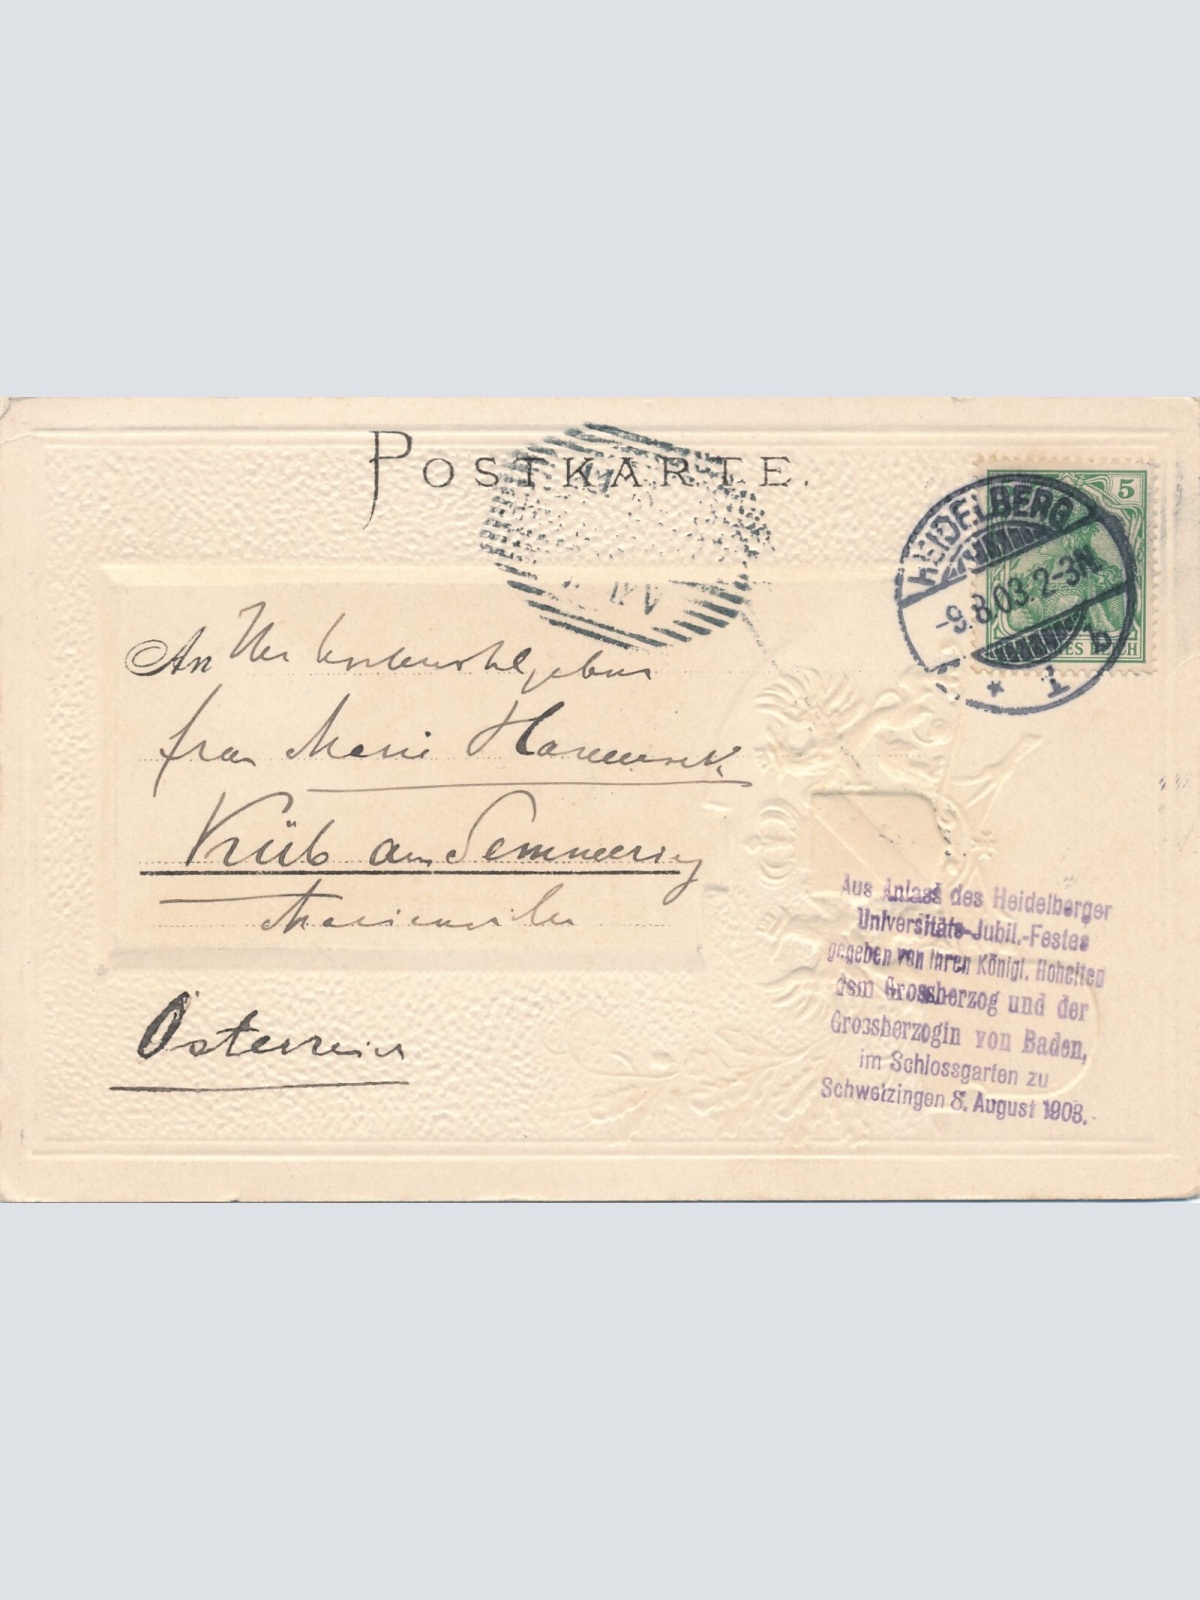 POSTKARTE.
5
HEIDELBERG
-9.8.03.2-3N.
* 1 b
ES REICH
An
Frau Marie
Küb am Semmering
Österreich
Aus Anlass des Heidelberger
Universitäts-Jubil.-Festes
gegeben von Ihren Königl. Hoheiten
dem Grossherzog und der
Grossherzogin von Baden,
im Schlossgarten zu
Schwetzingen 8. August 1903.